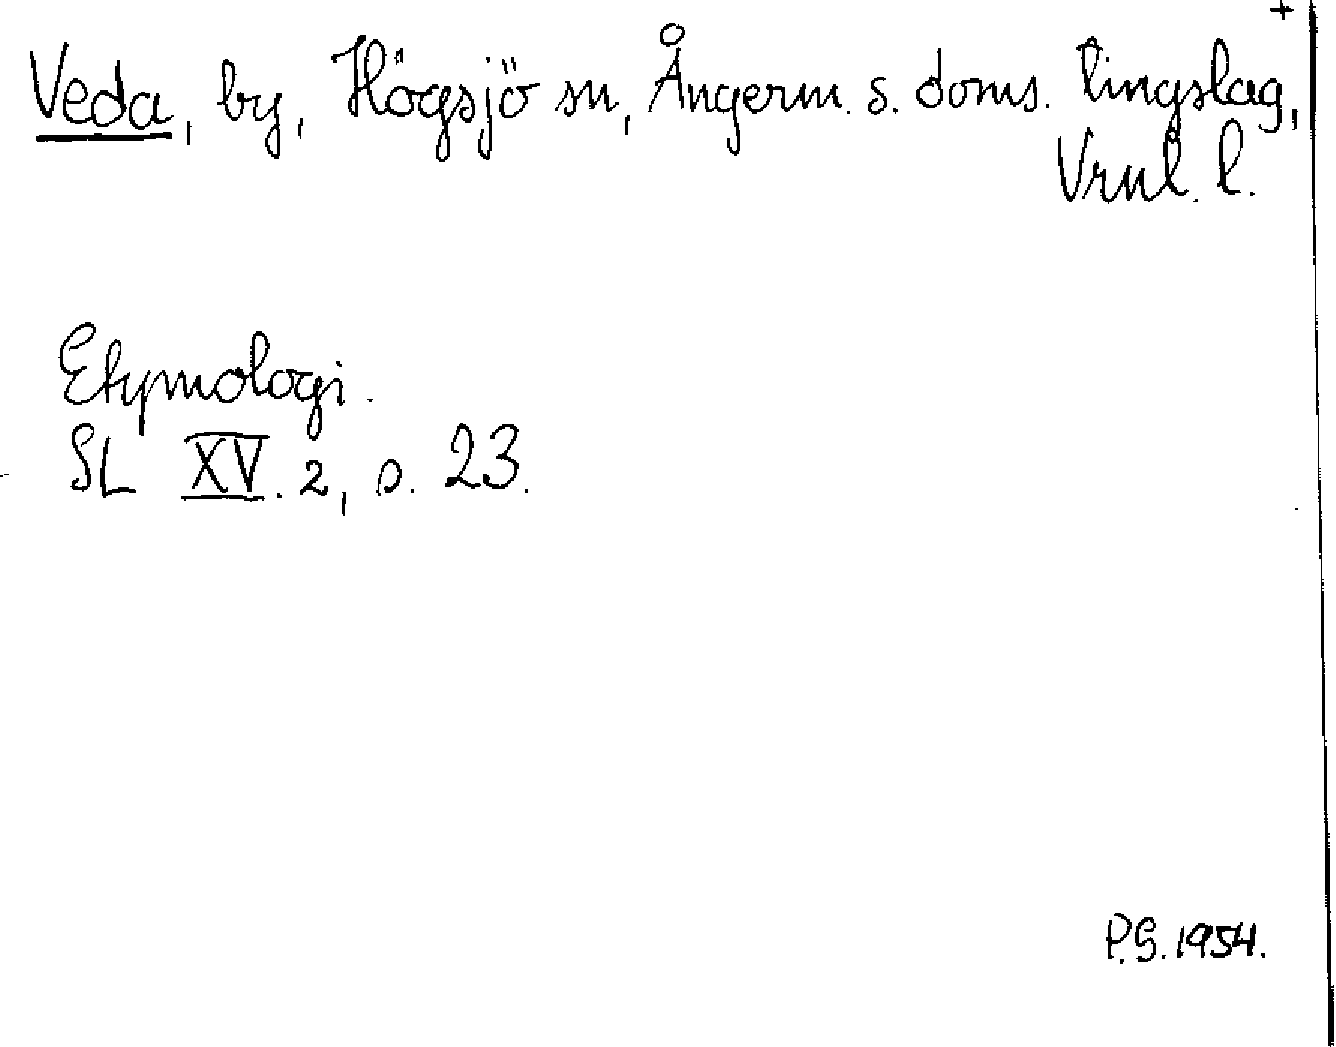 +
Veda, by, Högsjö sn, Ångerm. s. doms. tingslag,
Vrnl. l.
Etymologi.
SL XV. 2, s. 23.
P.G. 1954.